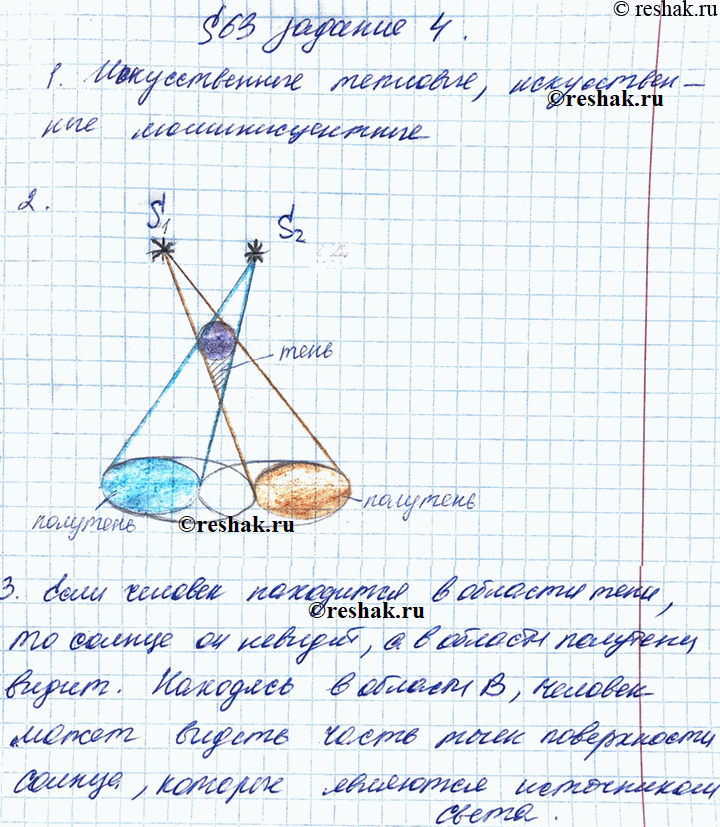 ©reshak.ru
§63 задание 4.
1. Искусственные тепловые, искуствен-
©reshak.ru
ные люминисцентные
2.
S1
S2
тень
полутень
полутень
©reshak.ru
3. Если человек находится в области тени,
©reshak.ru
то солнце он невидит, а в области полутени
видит. Находясь в области В, человек
может видеть часть точек поверхности
солнца, которые являются источником
света.